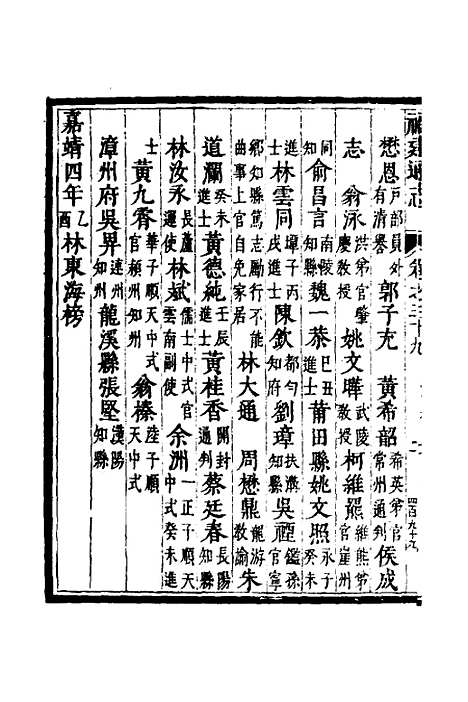 福建通志 卷之三十九
懋恩戶部員外有清譽 郭子充 黃希韶希英弟官常州通判 侯成
志 翁泳洪弟官肇慶教授 姚文曄武陵教授 柯維羆維熊弟官崖州
同知 俞昌言南陵知縣 魏一恭己丑進士 莆田縣姚文照永子癸未
進士 林雲同墀子丙戌進士 陳欽都勻知府 劉璋扶溝知縣 吳禋鑑孫官寧
鄉知縣篤志勵行不能曲事上官自免家居 林大通 周懋鼎龍游教諭 朱
道瀾癸未進士 黃德純壬辰進士 黃桂香開封通判 蔡廷春長陽知縣
林汝永長蘆運使 林斌儒士中式官雲南副使 余洲一正子順天中式癸未進
士 黃九霄華子順天中式官頼州知州 翁榛陸子順天中式
漳州府吳昇連州知州 龍溪縣張堅漢陽知縣
嘉靖四年乙酉林東海榜